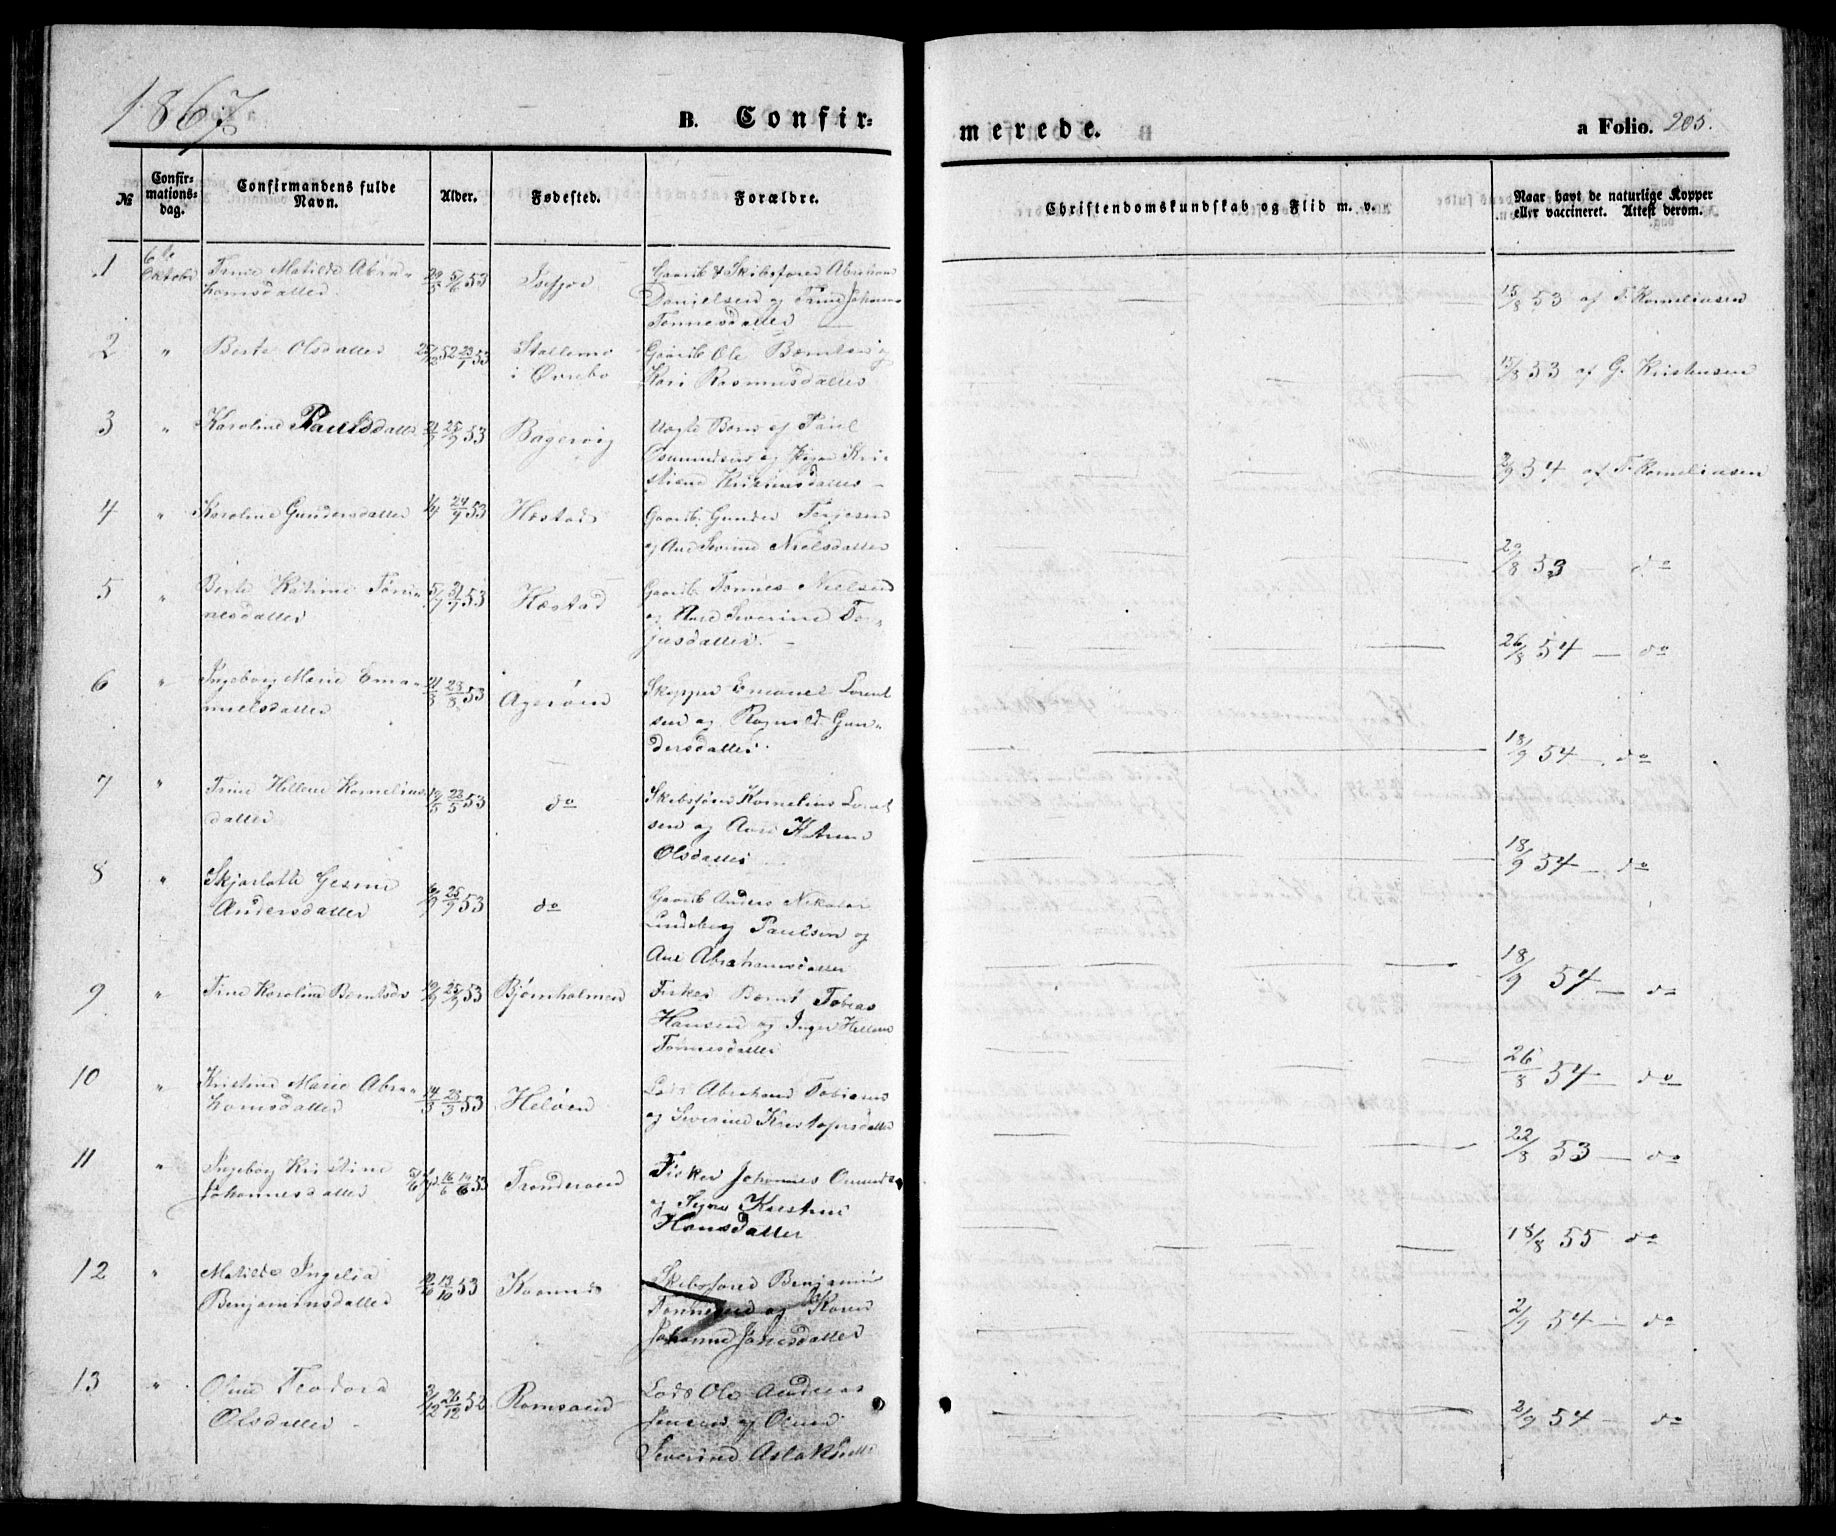 1867
B. Confir-
merede.
a Folio. 205.
№
Confir-
mations-
dag.
Confirmandens fulde
Navn.
Alder.
Fødested.
Forældre.
Christendomskundskab og Flid m. v.
Naar havt de naturlige Kopper
eller vaccineret. Attest derom.
1 6te Oktober Trine Matilde Abra-
homsdatter 29/5 5/6 53 Isefjær Gaarb & Skibsfører Abraham
Danielsen og Trine Johanne
Tønnesdatter 15/8 53 af T. Korneliusen
2 " Berte Olsdatter 25/12 52 23/1 53 Stallemo
i Øvrebø Gaarb Ole Berntsen og
Kari Rasmusdatter 15/8 53 af G. Kristensen
3 " Karoline Paulsdatter 25/9 53 Bagervig Uægte Barn af Paul
Osmundsen og Kri-
stiane 2/9 54 af T. Korneliusen
4 " Karoline Gundersdatter 24/9 53 Hæstad Gaarb. Gunder Terjesen
og Ane Severine Nielsdatter 29/8 53 — do
5 " Berte Katrine Tøn-
nesdatter 5/7 31/7 53 Hæstad Gaarb Tønnes Nielsen
og Ane Severine Ter-
jusdatter. 26/8 54 — do
6 " Ingeborg Marie Ema-
nuelsdatter 28/8 53 Agerøen Skipper Emanuel Lorent
sen og Ragnild Gun-
dersdatter 18/9 54 —. do
7 " Trine Hellene Kornelius
datter 23/5 53 do Skibsfører Kornelius Lorent
sen og Ane Katrine
Olsdatter 18/9 54 — do
8 " Skjarlotte Gesine
Andersdatter 25/9 53 do Gaarb Anders Nikolai
Lindeberg Paulsen og
Ane Abrahamsdatter 18/9 54 — do
9 " Tine Karoline Berntsdr 25/9 53 Bjørnholmen Fisker Bernt Tobias
Hansen og Inger Hellene
Tønnesdatter 26/8 54 — do
10 " Kristine Marie Abra-
homsdatter 14/3 28/3 53 Heløen Lods Abraham Tobiasen
og Severine Kristofersdatter 22/8 53 — do
11 " Ingeborg Kristine
Johannesdatter 53 Trønderøen Fisker Johannes
og Signe Kristine
Hansdatter 18/8 55 do
12 " Matilde Ingelia
Benjaminsdatter 13/10 53 Skibsfører Benjamin
Tønnesen og Karen
Johanne Jansdatter 2/9 54 — do
13 " Oline Teodora
Olsdatter 3/12 26/12 52 Romsøen Lods Ole Andreas
Jensen og Oline
Severine Aslaksdatter 2/9 54 — do